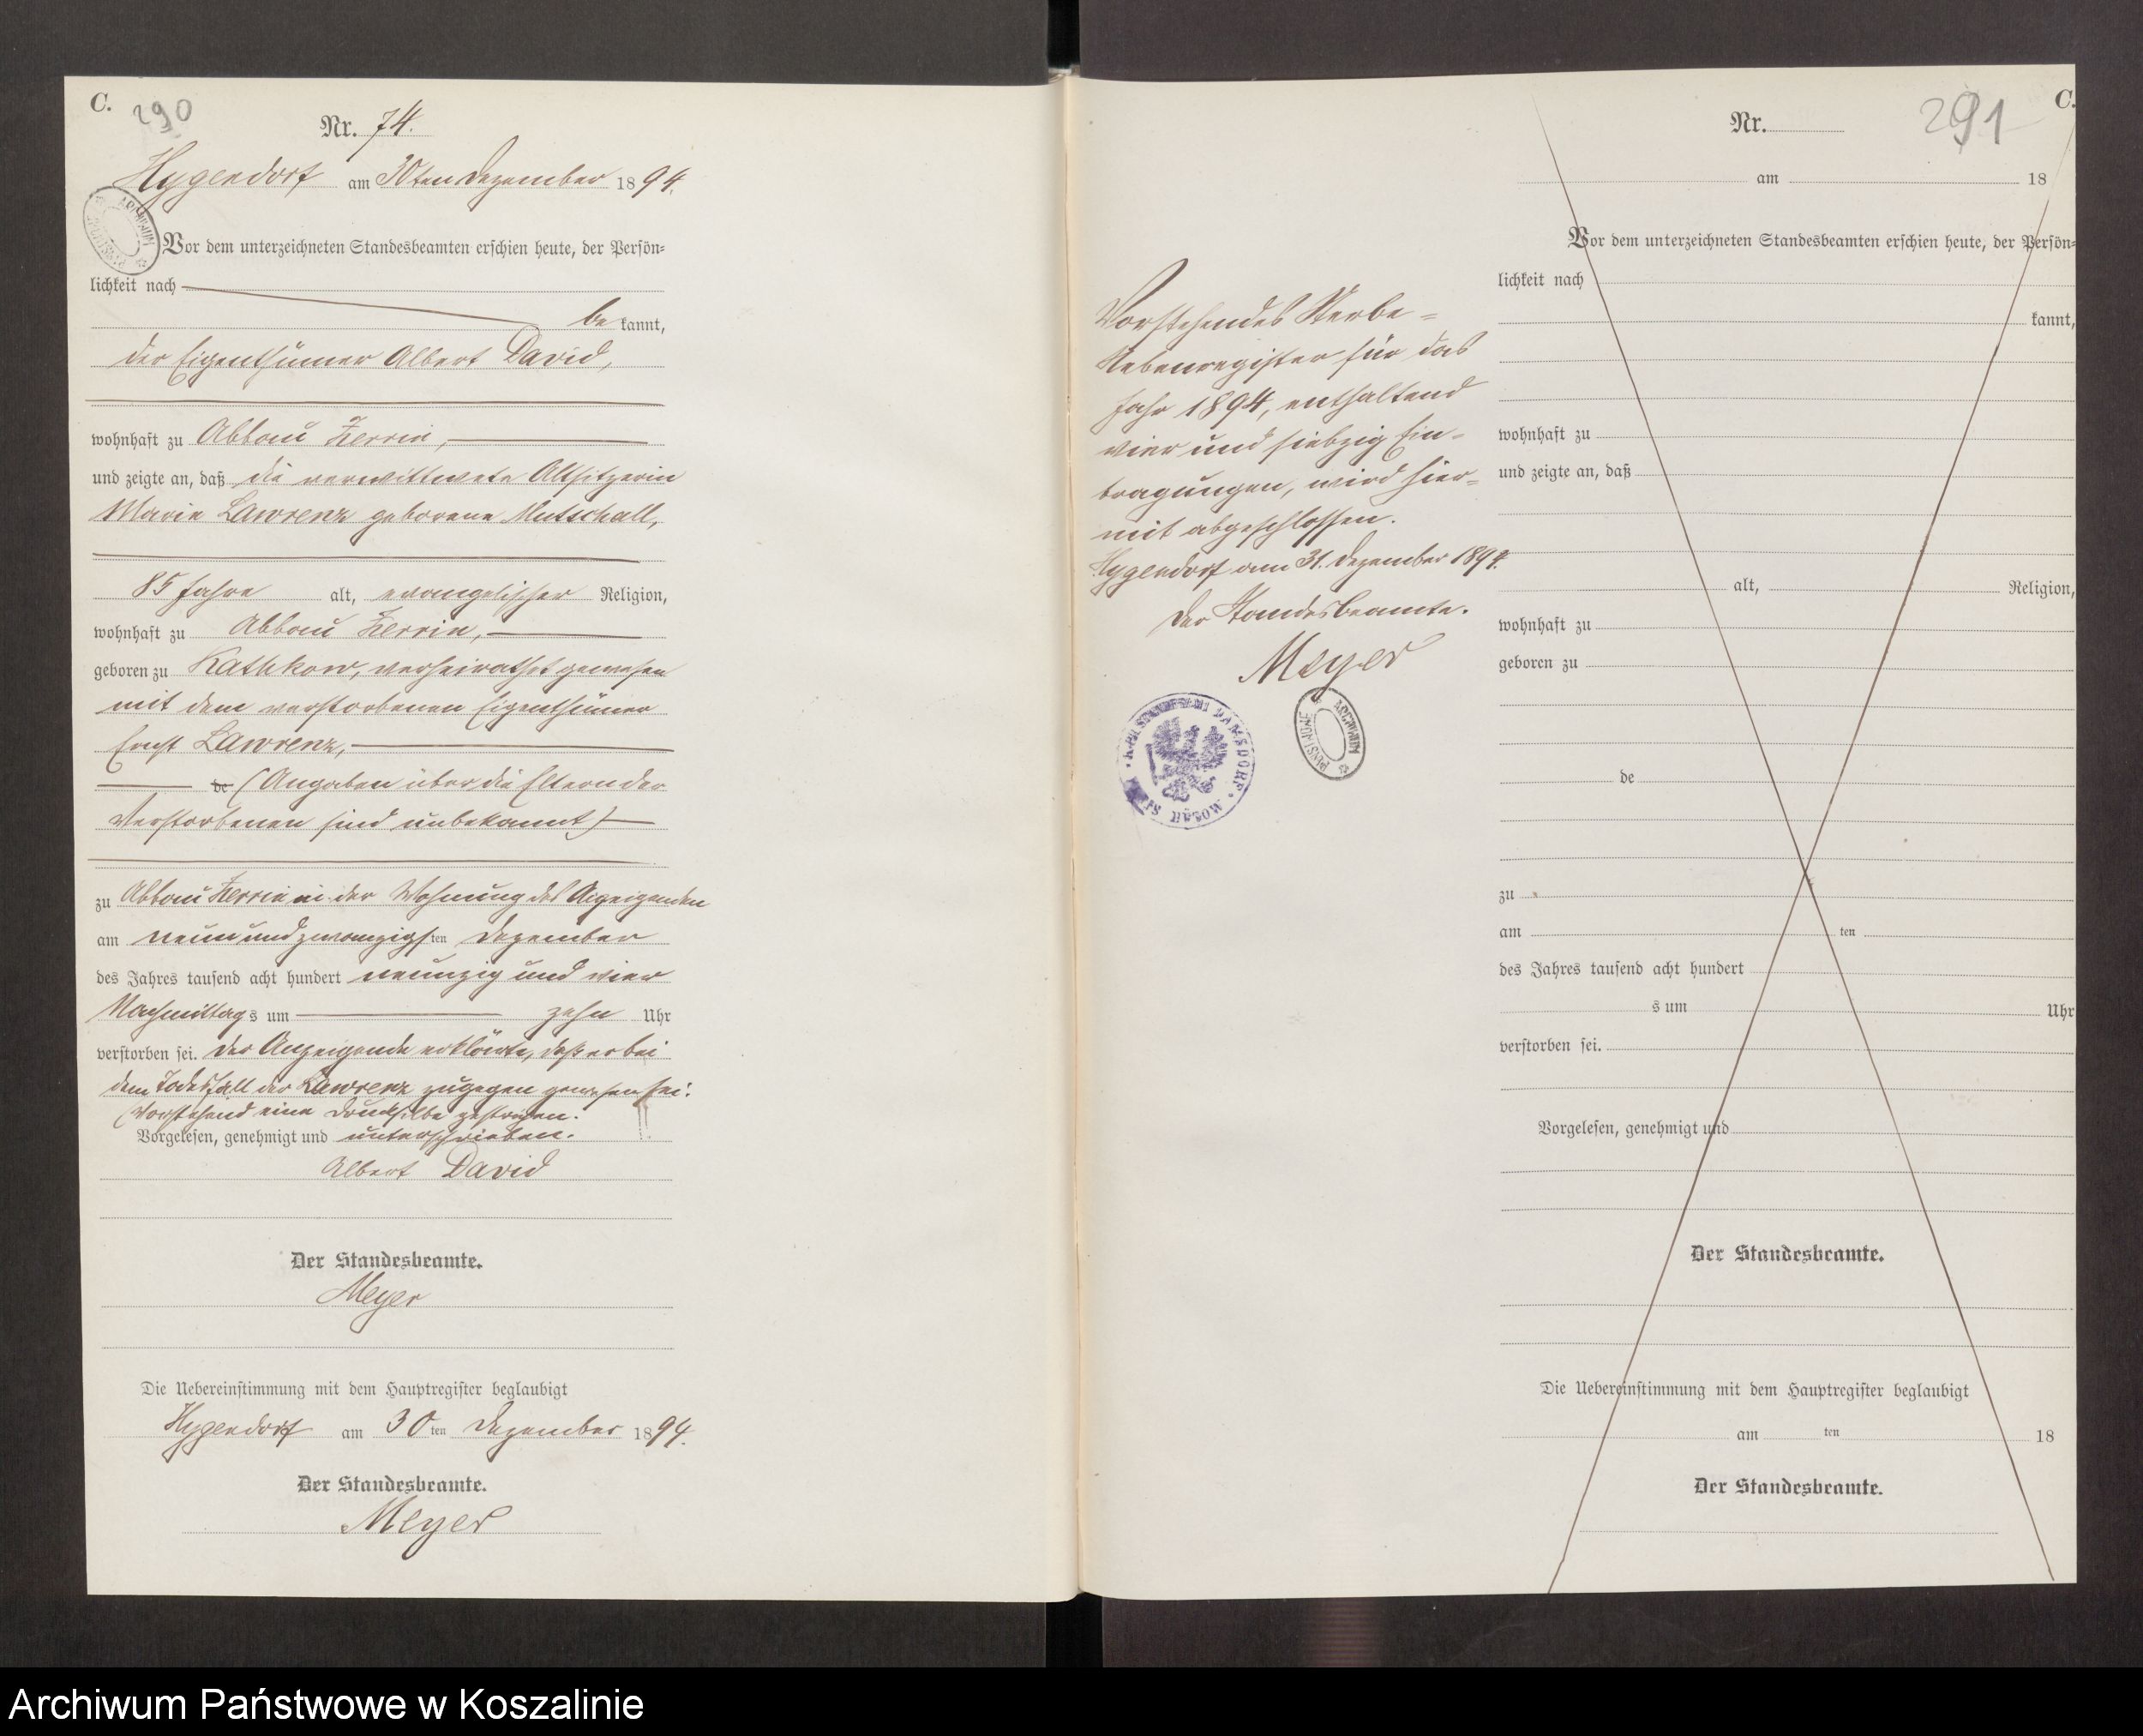 C.
290
Nr. 74.
Hygendorf am 30ten Dezember 1894.
ARCHIWUM PAŃSTWOWE
Vor dem unterzeichneten Standesbeamten erschien heute, der Persön=
lichkeit nach
be kannt,
der Eigenthümer Albert David,
wohnhaft zu Abbau Zerrin,
und zeigte an, daß die verwittwete Altsitzerin
Marie Lawrenz geborene Mutschall,
85 Jahre alt, evangelischer Religion,
wohnhaft zu Abbau Zerrin,
geboren zu Kathkow, verheirathet gewesen
mit dem verstorbenen Eigenthümer
Ernst Lawrenz,
de (Angaben über die Eltern der
Verstorbenen sind unbekannt)
zu Abbau Zerrin in der Wohnung des Anzeigenden
am neun und zwanzigsten Dezember
des Jahres tausend acht hundert neunzig und vier
Nachmittags um zehn Uhr
verstorben sei. Der Anzeigende erklärte, daß er bei
dem Todesfall der Lawrenz zugegen gewesen sei.
(Vorstehend eine Drucksilbe gestrichen.
Vorgelesen, genehmigt und unterschrieben.
Albert David
Der Standesbeamte.
Meyer
Die Uebereinstimmung mit dem Hauptregister beglaubigt
Hygendorf am 30ten Dezember 1894.
Der Standesbeamte.
Meyer
Vorstehendes Sterbe=
Nebenregister für das
Jahr 1894, enthaltend
vier und siebzig Ein=
tragungen, wird hier=
mit abgeschlossen.
Hygendorf am 31. Dezember 1894.
Der Standesbeamte.
Meyer
ARCHIWUM PAŃSTWOWE
C.
291
Nr.
am 18
Vor dem unterzeichneten Standesbeamten erschien heute, der Persön=
lichkeit nach
kannt,
wohnhaft zu
und zeigte an, daß
alt, Religion,
wohnhaft zu
geboren zu
de
zu
am ten
des Jahres tausend acht hundert
s um Uhr
verstorben sei.
Vorgelesen, genehmigt und
Der Standesbeamte.
Die Uebereinstimmung mit dem Hauptregister beglaubigt
am ten 18
Der Standesbeamte.
Archiwum Państwowe w Koszalinie